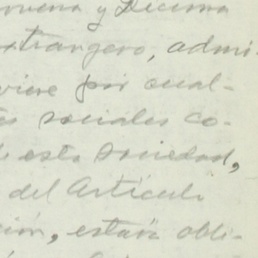 novena y Décima
extrangero, admi-
viere por cual-
es sociales co-
esta sociedad,
del Artículi
ción, estará obli-